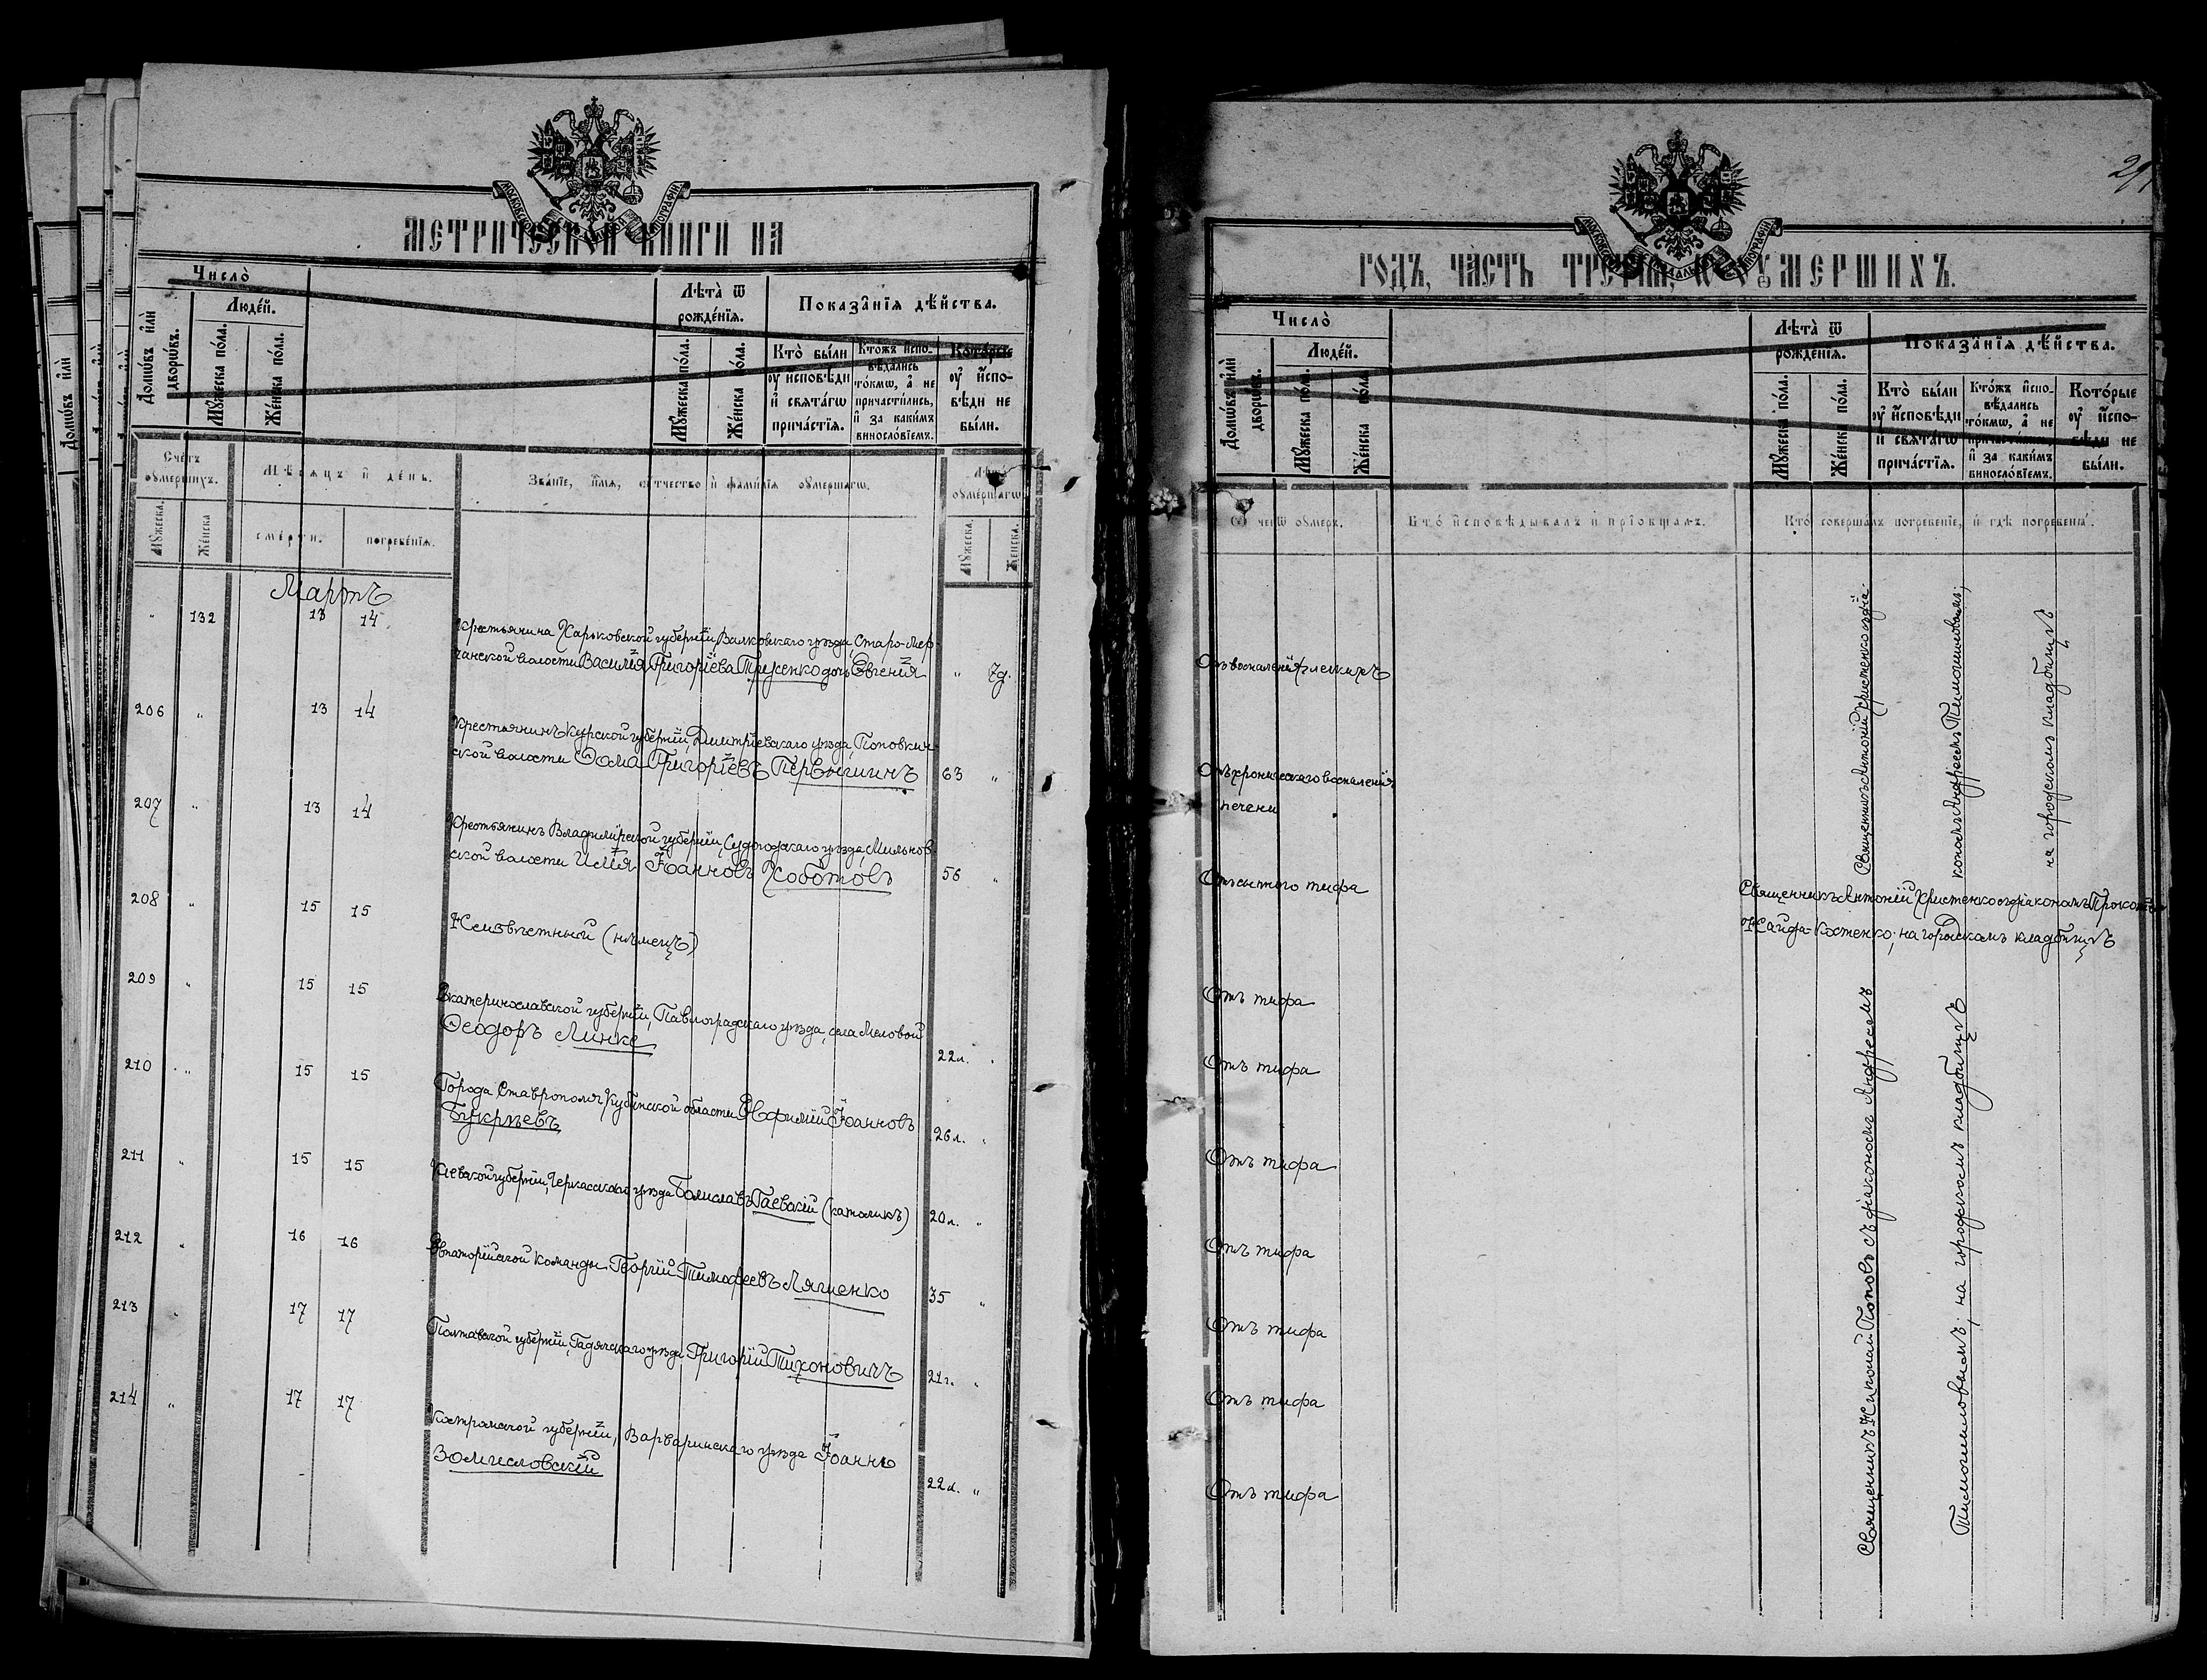 МЕТРИЧЕСКОЙ КНИГИ НА
Число̀
Людей.
Домѡвъ и҆лѝ дворѡвъ.
Мꙋжеска по́ла.
Же́нска по́ла.
Лѣта̀ ѿ рожде́нїѧ.
Мꙋжеска по́ла.
Же́нска по́ла.
Показа̑нїѧ дѣ́йства.
Кто̀ бы́ли ᲂу҆ и҆сповѣди и҆ свѧта́гѡ прича́стїѧ.
Кто́жъ и҆спо-
вѣдались
то́кмѡ, а҆ не
причасти́лись,
и҆ за каки́мъ
виносло́вїемъ.
Кото́рые
ᲂу҆ и҆спо-
вѣди не
бы́ли.
Счетъ ᲂумершихъ.
Мѣсѧцъ и день.
Званїе, имѧ, отчество и фамилїѧ ᲂумершагѡ.
Лѣта ᲂумершагѡ.
Мꙋжеска.
Женска
смерти.
погребенїѧ.
Мꙋжеска.
Женска.
Мартъ
" 132 13 14
Крестьянина Харьковской губерніи, Валковскаго уѣзда, Старо-Мер-
чанской волости Василія Григоріева Труженко дочь Евгенія " 7д.
206 " 13 14
Крестьянинъ Курской губерніи, Дмитріевскаго уѣзда, Поповкин-
ской волости Ѳома Григоріевъ Первышинъ 63 "
207 " 13 14
Крестьянинъ Владимірской губерніи, Судогодскаго уѣзда, Мильнов-
ской волости Илія Іоанновъ Хоботовъ 56 "
208 " 15 15
Неизвѣстный (нѣмецъ)
209 " 15 15
Екатеринославской губерніи, Павлоградскаго уѣзда, села Меловой
Ѳеодоръ Линке 22л. "
210 " 15 15
Города Ставрополя Кубанской области Евфимій Іоанновъ
Букрѣевъ 26л. "
211 " 15 15
Кіевской губерніи, Черкасскаго уѣзда Болиславъ Гаевскій (католикъ) 20л. "
212 " 16 16
Евпаторійской команды Георгій Тимофеевъ Лягиенко 35 "
213 " 17 17
Полтавской губерніи, Гадячскаго уѣзда Григорій Тихоновичъ 21г. "
214 " 17 17
Костромской губерніи, Варваринскаго уѣзда Іоаннъ
Зомисловскій 22л. "
ГОДЪ, ЧАСТЬ ТРЕТІЯ, Ѡ ОУМЕРШИХЪ.
Число̀
Людей.
Домѡвъ и҆лѝ дворѡвъ.
Мꙋжеска по́ла.
Же́нска по́ла.
Лѣта̀ ѿ рожде́нїѧ.
Мꙋжеска по́ла.
Же́нска по́ла.
Показа̑нїѧ дѣ́йства.
Кто̀ бы́ли ᲂу҆ и҆сповѣди и҆ свѧта́гѡ прича́стїѧ.
Кто́жъ и҆спо-
вѣдались
то́кмѡ, а҆ не
причасти́лись,
и҆ за каки́мъ
виносло́вїемъ.
Кото́рые
ᲂу҆ и҆спо-
вѣди не
бы́ли.
Ѿ чегѡ ᲂумеръ.
Кто исповѣдывалъ и прїобщалъ.
Кто совершалъ погребенїе, и гдѣ погребены.
Отъ воспаленія легкихъ
Отъ хроническаго воспаленія
печени
Отъ сыпного тифа
Отъ тифа
Отъ тифа
Отъ тифа
Отъ тифа
Отъ тифа
Отъ тифа
Отъ тифа
Священникъ Антоній Христенко съ діа-
кономъ Андреемъ Тимошиновымъ;
на городскомъ кладбищѣ
Священникъ Антоній Христенко съ діакономъ
Костенко; на городскомъ кладбищѣ
Священникъ Николай Поповъ съ діакономъ Андреемъ
Тимошиновымъ; на городскомъ кладбищѣ